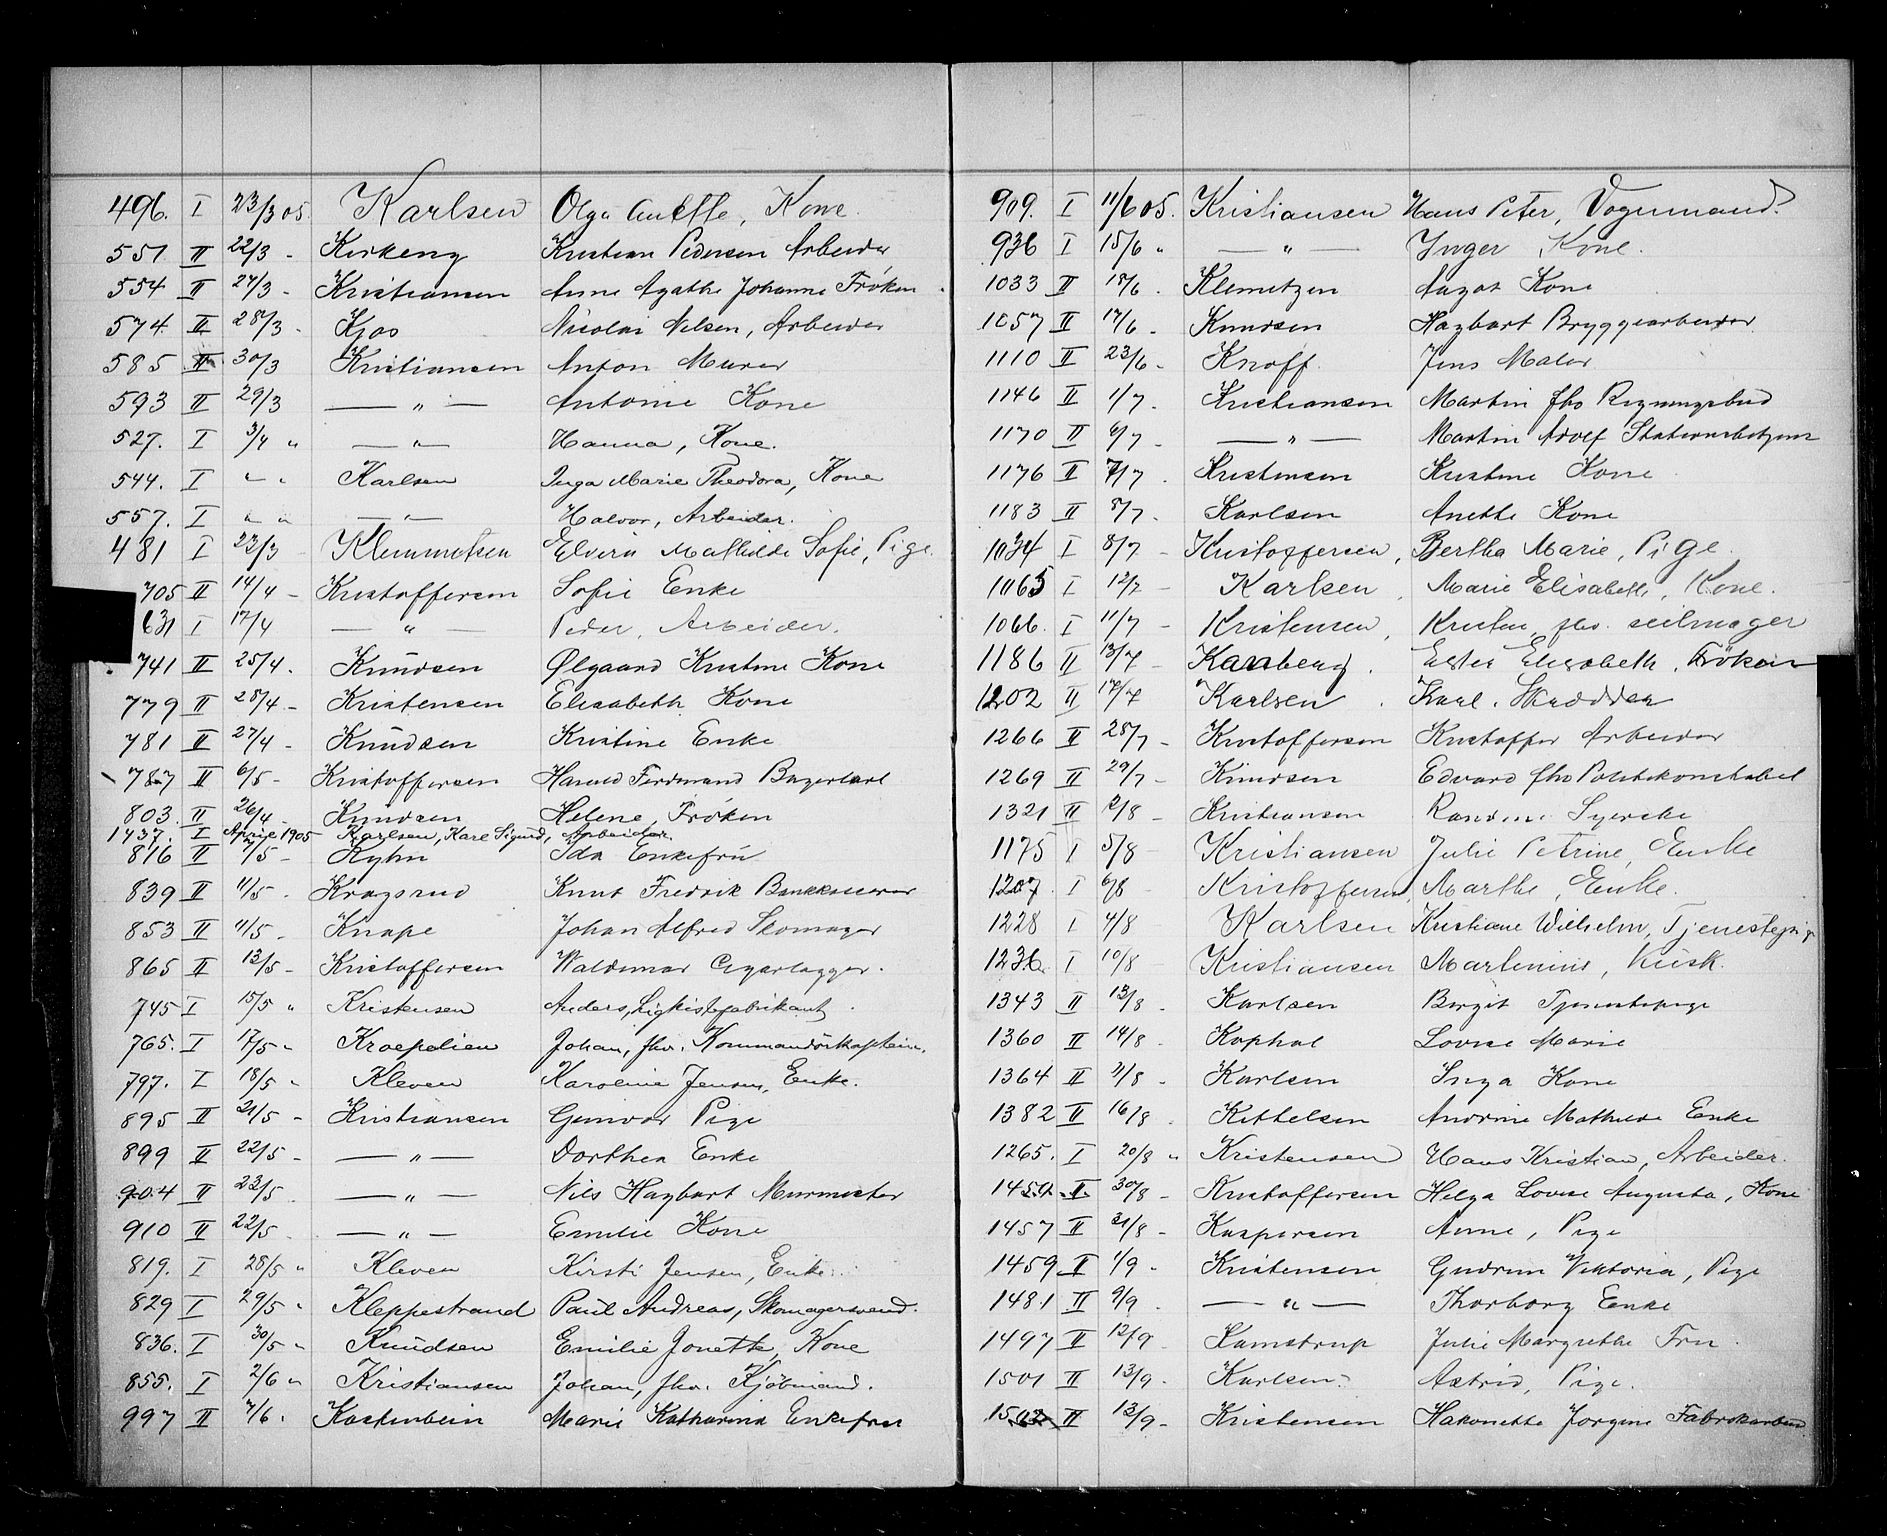 496. I 23/3 05. Karlsen Olga Anette, Kone.
551 II 22/3 - Kirkeng Kristian Pedersen Arbeider
554 II 27/3 - Kristiansen Anne Agathe Johanne Frøken
574 II 28/3 - Kjos Nicolai Nilsen, Arbeider
585 II 30/3 Kristiansen Anton Murer
593 II 29/3 — " — Antonie Kone
527. I 3/4 " — " — Hanna, Kone.
544. I " " Karlsen Inga Marie Theodora, Kone
557. I " " — " — Halvor, Arbeider.
481 I 23/3 Klemmetsen Elvira Mathilde Sofie, Pige.
705 II 14/4 - Kristoffersen Sofie Enke
631 I 17/4 — " — Peder, Arbeider.
741 II 25/4 - Knudsen Ølgaard Kristine Kone
779 II 28/4 - Kristensen Elisabeth Kone
781 II 27/4 - Knudsen Kristine Enke
787 II 6/5 - Kristoffersen Harald Ferdinand
803. II 26/4 - Knudsen Helene, Frøken
1437. I April 1905 Karlsen, Karl Sigurd, Arbeider.
816 II /5 - Kyhn Ida Enkefru
839 II 11/5 - Kragsrud Knut Fredrik Bankkasserer
853 II 11/5 - Knape Johan Alfred Skomager
865 II 13/5 - Kristoffersen Waldemar
745 I 15/5 " Kristensen Anders, Ligkistefabrikant
765. I 17/5 " Kroepelien Johan, fhv. Kommandörkaptein.
797. I 18/5 " Kleven Karoline Jensen, Enke.
895 II 21/5 - Kristiansen Gunvor Pige
899 II 22/5 - — " — Dorthea Enke
904 II 23/5 — " — Nils Hagbart Murmester
910 II 22/5 - — " — Emilie Kone
819. I 28/5 " Kleven Kirsti Jensen, Enke.
829 I 29/5 " Kleppestrand Paul Andreas, Skomagersvend.
836. I 30/5 " Knudsen Emilie Jonette, Kone
855. I 2/6 " Kristiansen Johan, fhv. Kjöbmand.
997 II 7/6 . Kastenbein Marie Katharina Enkefru
909. I 11/6 05. Kristiansen Hans Peter, Vognmand.
936 I 15/6 " — " — Inger Kone.
1033 II 18/6 . Klemetzen Aagot Kone
1057 II 17/6 - Knudsen Hagbart Bryggearbeider
1110 II 23/6 - Knoff Jens Maler
1146 II 1/7 . Kristiansen Martin fhv Regningsbud
1170 II 6/7 - — " — Martin Adolf Stationsbetjent
1176 II 7/7 - Kristensen Kristine Kone
1183 II 8/7 - Karlsen Anette Kone
1034 I 8/7 - Kristoffersen, Bertha Marie, Pige.
1065 I 12/7 - Karlsen, Marie Elisabeth, Kone.
1066. I 11/7 - Kristensen, Kristen, fhv. seilmager
1186 II 13/7 - Karlberg. Ester Elisabeth, Frøken
1202 II 17/7 Karlsen. Karl. Skrædder
1266 II 28/7 - Kristoffersen Kristoffer Arbeider
1269 II 29/7 - Knudsen Edvard fhv Politikonstabel
1321 II 2/8 - Kristiansen Randine Syerske
1175 I 5/8 - Kristiansen Julie Petrine, Enke
1207. I 6/8 - Kristoffersen, Marthe, Enke.
1228 I 4/8 Karlsen Kristiane Wilhelm, Tjenestepige
1236. I 10/8 - Kristiansen Martinius, Kusk.
1343 II 13/8 - Karlsen Birgit Tjenestepige
1360 II 14/8 - Kophal Lovise Marie
1364 II /8 - Karlsen Inga Kone
1382 II 16/8 . Kittelsen Andrine Mathilde Enke
1265. I 20/8 " Kristensen Hans Kristian, Arbeider.
1454 II 30/8 - Kristoffersen Helga Lovise Augusta, Kone
1457 II 31/8 - Kaspersen Anne, Pige
1459 II 1/9 . Kristensen Gudrun Viktoria, Pige
1481 II 9/9 . — " — Thorborg Enke
1497 II 12/9 . Kamstrup Julie Margrethe Fru
1501 II 13/9 - Karlsen Astrid, Pige.
1502 II 13/9 - Kristensen Hakonette Jorgine Fabrikarbeid